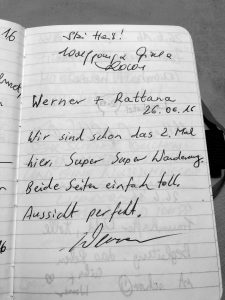 16
Wolfgang & Gisela
Werner & Rattana
26.06.16
Wir sind schon das 2. Mal
hier. Super Super Wanderung.
Beide Seiten einfach toll.
Aussicht perfekt.
Werner